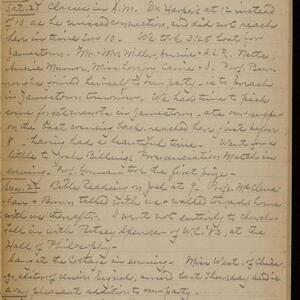 Sat. 27 Classes in A.M. Dr. Harper's at 12 instead
of 10 as he missed connection, and did not reach
here in time for 10. We took 3:25 boat for
Jamestown. Mr. & Mrs. Miller, Annie, A.E.R. Nettie,
Annie Munro, Miss Carrie & I. Prof. Bur-
joined himself to our party is to preach
in Jamestown tomorrow. We had time to pick
some in Jamestown, ate our supper
on the boat coming back, reached here just before
8. having had a beautiful time. Went for a
little to Josh Billings, Pronunciation Match in
evening. Prof. took the first prize.
Sun. 28 Bible Reading on Joel at 9. Profs. McClena-
han & Brown talked with us & walked towards home
with us thereafter. I went not entirely to church
fell in with Petsey Spencer of W.C. '83, at the
Hall of Philosophy.
Sang at the Cottage in evening. Miss West, of Chica-
go, editor of Union Signal, arrived last Thursday and is
a very pleasant addition to our party.